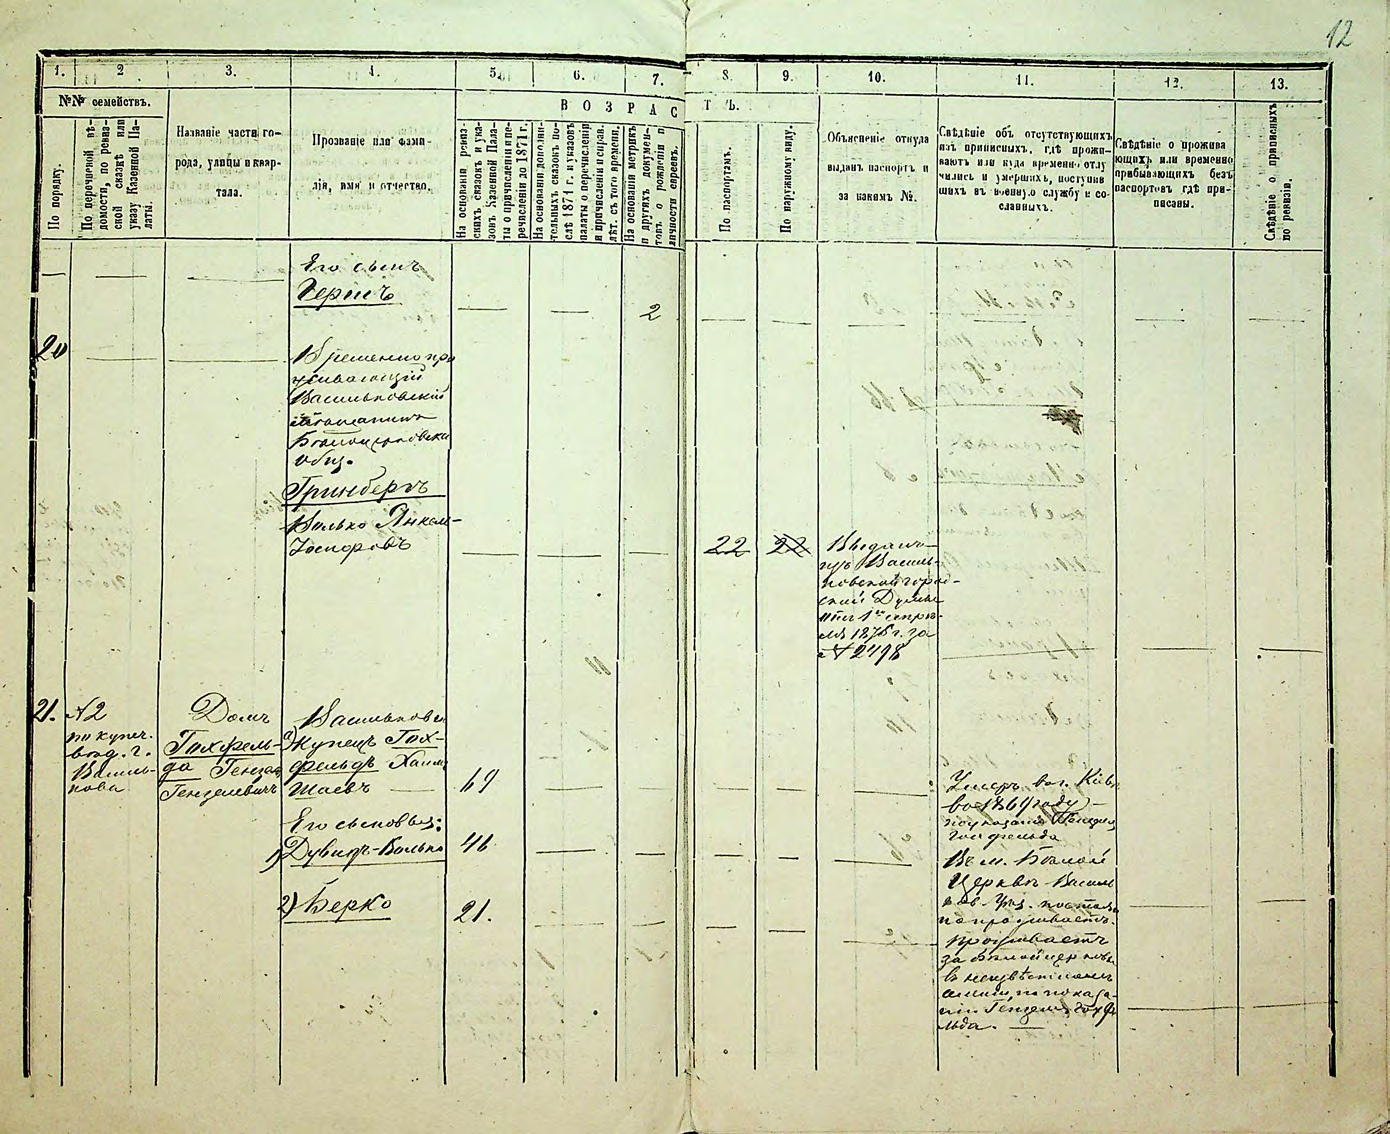 12
1.
2
3.
4.
5.
6.
7.
8.
9.
10.
11.
12.
13.
№№ семействъ.
По порядку.
По перечневой вѣ-
домости, по ревиз-
ской сказкѣ или
указу Казенной Па-
латы.
Названіе части го-
рода, улицы и квар-
тала.
Прозваніе или фами-
лія, имя и отчество.
ВОЗРАСТЪ.
На основаніи ревиз-
скихъ сказокъ и ука-
зовъ Казенной Пала-
ты о причисленіи и пе-
речисленіи до 1871 г.
На основаніи дополни-
тельныхъ сказокъ по-
слѣ 1871 г. и указовъ
палаты о перечисленіи
и причисленіи и справ.
лѣт. съ того времени.
На основаніи метрикъ
и другихъ докумен-
товъ о рожденіи и
личности евреевъ.
По паспортамъ.
По наружному виду.
Объясненіе откуда
выданъ паспортъ и
за какимъ №.
Свѣдѣніе объ отсутствующихъ
изъ приписныхъ, гдѣ прожи-
ваютъ или куда временно отлу
чились и умершихъ, поступив
шихъ въ военную службу и со-
сланныхъ.
Свѣдѣніе о прожива
ющихъ или временно
прибывающихъ безъ
паспортовъ гдѣ при-
писаны.
Свѣдѣніе о приписныхъ
по ревизіи.
Его сынъ
Гершъ
2
20
Временно про
живающій
Васильковскій
мѣщанинъ
Бѣлоцерковск
общ.
Гринбергъ
Волько Янкель-
Іосифовъ
22
22
Выдано
изъ Василь-
ковской город-
ской Думы
1го апрѣ-
ля 1875 г. за
№ 2498
21.
№2
по купеч.
вѣд. г.
Василь-
кова
Домъ
Гохфель-
да Гензель
Гензелевичъ
Васильков
Купецъ Гох-
фельдъ Хаим
Шаевъ
69
Умеръ въ г. Кіев
въ 1869 году
по указанію Гензеля
Гохфельда
Его сыновья:
1) Дувидъ-Волько
46
Въ м. Бѣлой
Церкви Василь
ков. уѣз. постоян
но проживаетъ.
2) Берко
21.
проживаетъ
за Бѣлой церковью
въ неизвѣстномъ
по показа-
нію Гензеля Гохфе
льда.